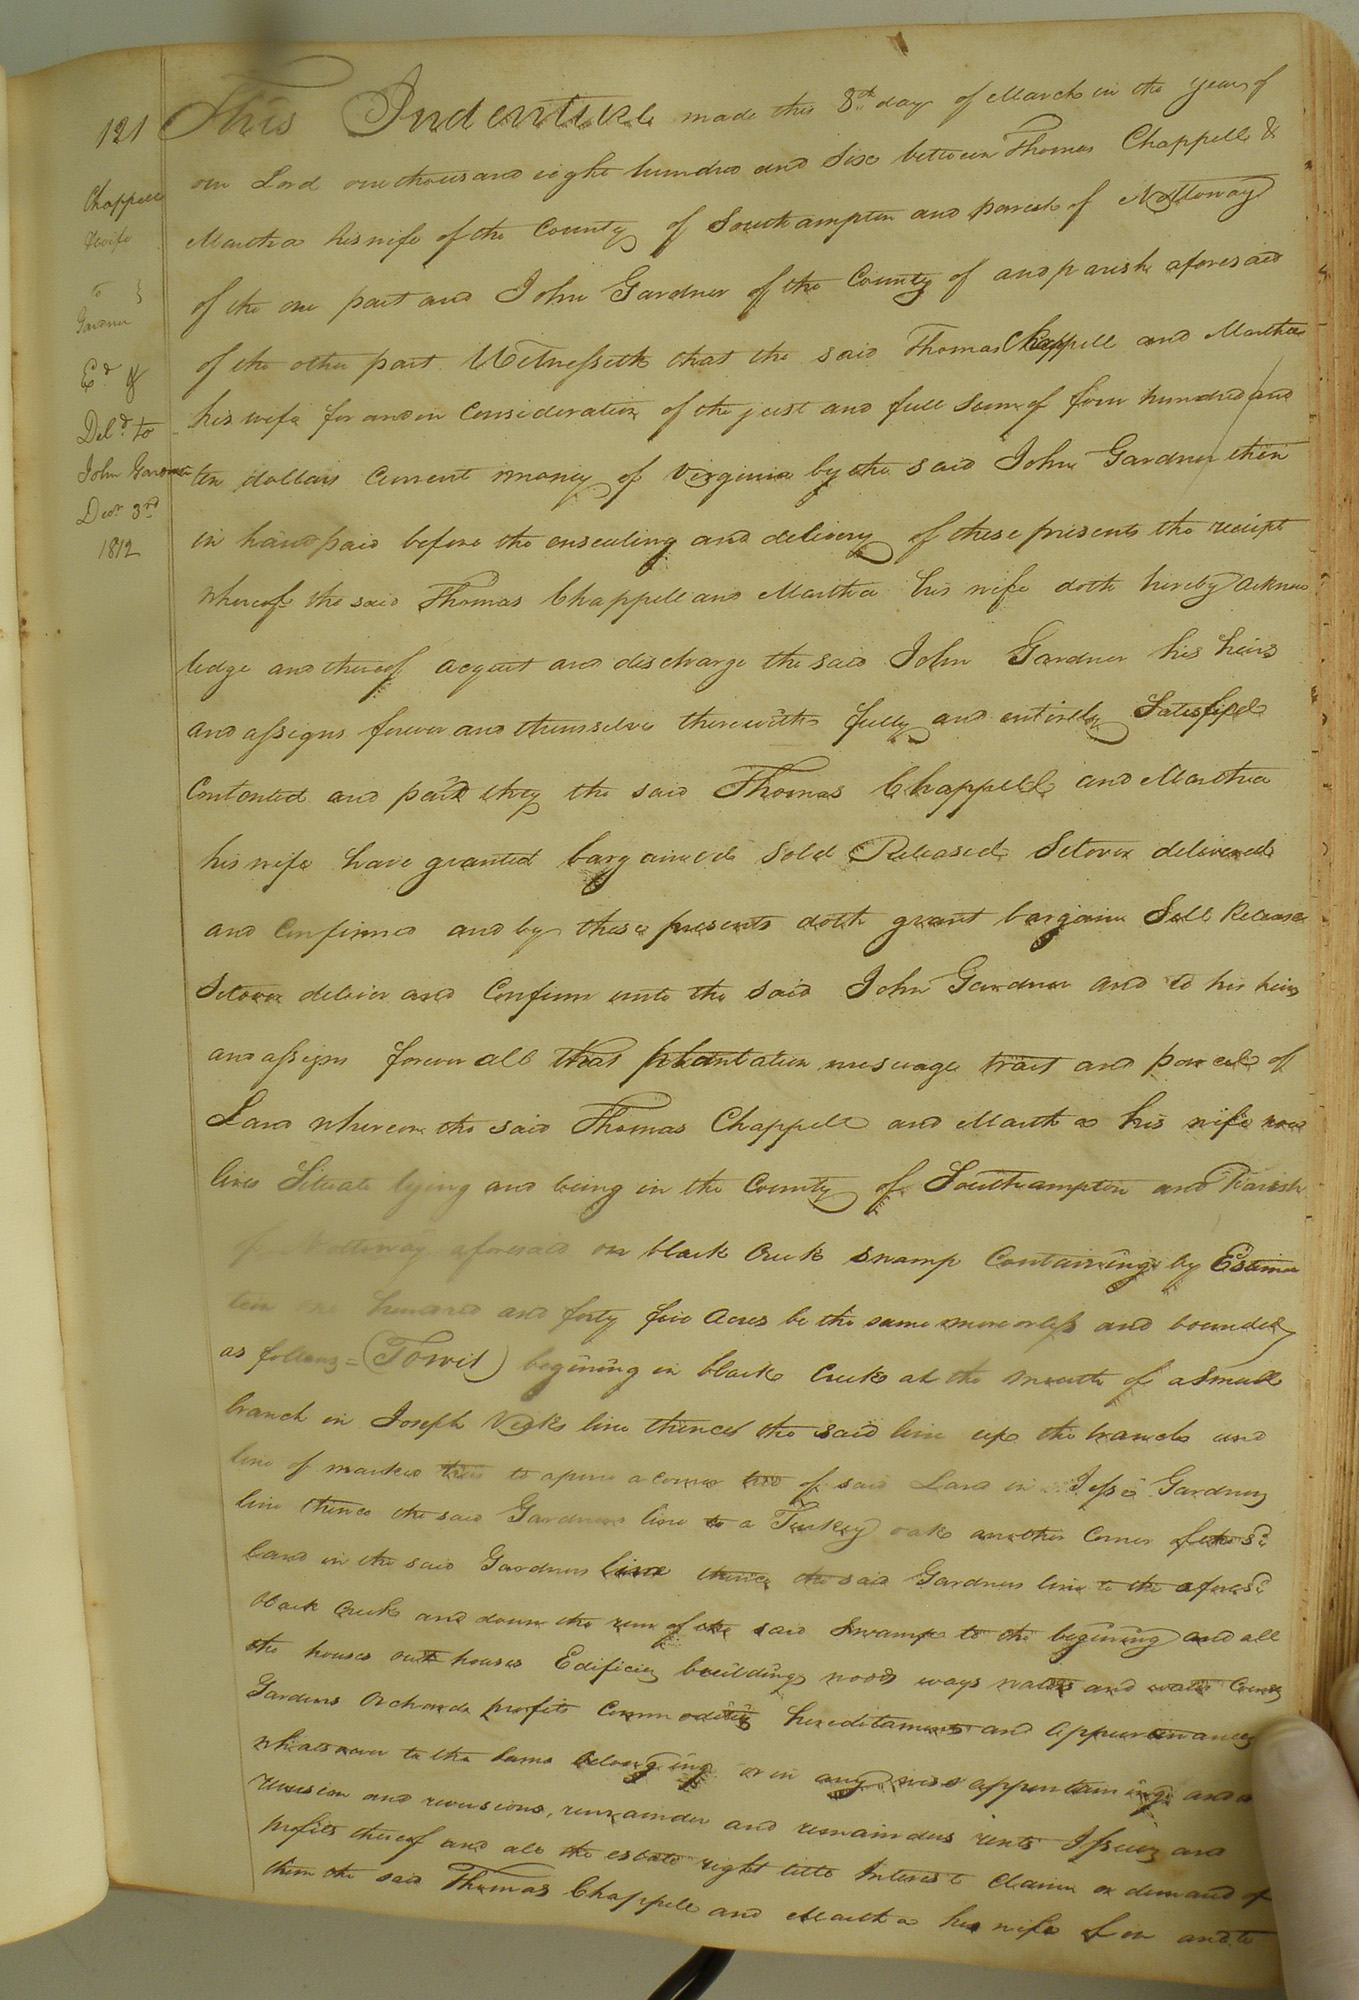 121
Chappell
& wife
to }
Gardner
Ed. &
Deld. to
John Gardner
Decr. 3rd
1812
This Indenture made this 8th day of March in the year of
our Lord one thousand eight hundred and Six between Thomas Chappell &
Martha his wife of the County of Southampton and parish of Nottoway
of the one part and John Gardner of the County of and parish aforesaid
of the other part Witnesseth that the said Thomas Chappell and Martha
his wife for and in Consideration of the just and full Sum of four hundred and
ten dollars Current money of Virginia by the said John Gardner then
in hand paid before the ensealing and delivery of these presents the receipt
whereof the said Thomas Chappell and Martha his wife doth hereby acknow
ledge and thereof acquit and discharge the said John Gardner his heirs
and assigns forever and themselves therewith fully and entirely Satisfied
Contented and paid they the said Thomas Chappell and Martha
his wife have granted bargained Sold Released Setover delivered
and Confirmed and by these presents doth grant bargain Sell Release
Setover deliver and Confirm unto the said John Gardner and to his heirs
and assigns forever all that plantation messuage tract and parcel of
Land whereon the said Thomas Chappell and Martha his wife now
lives Situate lying and being in the County of Southampton and Parish
of Nottoway aforesaid on black Creek swamp Containing by Estima
tion one hundred and forty five Acres be the same more or less and bounded
as follows = (Towit) begining in black Creek at the mouth of a Small
branch in Joseph Vicks line thence the said line up the branch and
line of marked trees to a pine a corner tree of said Land in Jesse Gardners
line thence the said Gardners line to a Turkey oak another Corner of the sd.
land in the said Gardners line thence the said Gardners line to the aforesd.
black Creek and down the run of the said Swamp to the begining and all
the houses out houses Edificies buildings woods ways waters and water Courses
Gardens Orchards profits Commodities hereditaments and Appurtinances
whatsoever to the Same belonging or in any wise appertaining and
reversion and reversions, remainder and remainders rents Issues and
profits thereof and all the estate right title Interest Claim or demand of
them the said Thomas Chappell and Martha his wife of in and to